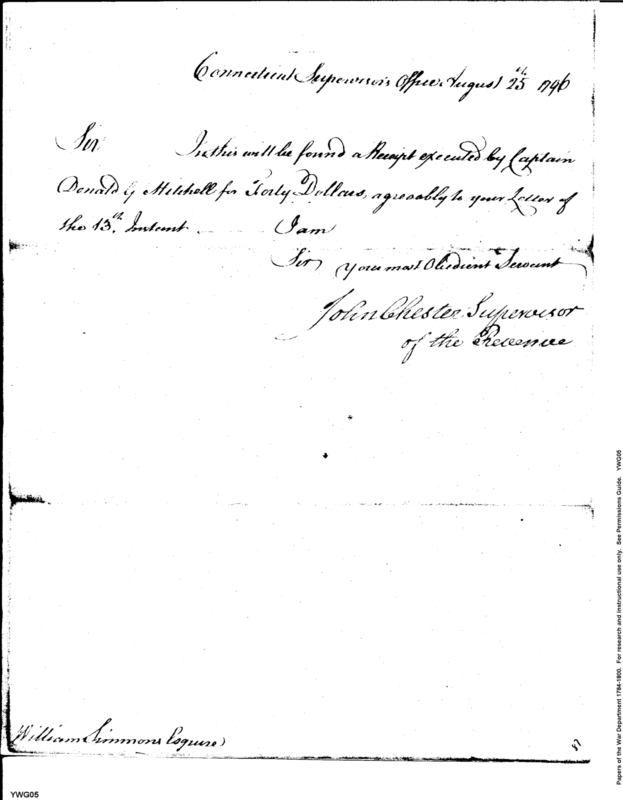 Connecticut Supervisor's Office August 25th 1796
Sir In this will be found a Receipt executed by Captain
Donald G Mitchell for Forty Dollars, agreeably to your Letter of
the 13th. Instant I am
Sir your most Obedient Servant
John Chester Supervisor
of the Revenue
William Simmons Esquire
Papers of the War Department 1784-1800. For research and instructional use only. See Permissions Guide. YWG05
YWG05